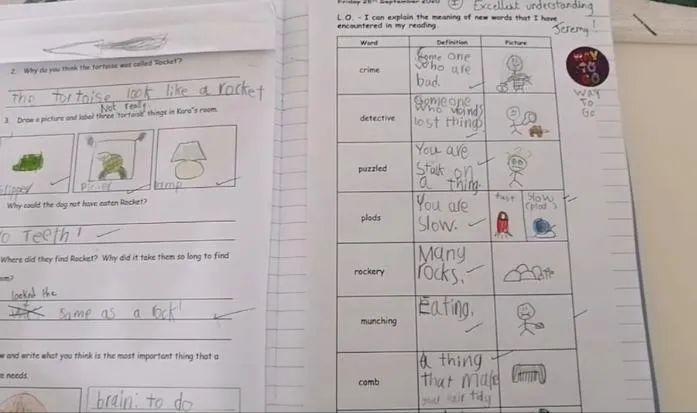 2. Why do you think the tortoise was called 'Rocket'?
The tortoise look like a rocket
Not really
3. Draw a picture and label three 'tortoise' things in Kara's room.
slipper
Picier
lamp
Why could the dog not have eaten Rocket?
o Teeth!
Where did they find Rocket? Why did it take them so long to find
looked the
same as a rock!
w and write what you think is the most important thing that a
e needs.
brain: to do
Friday 25th September 2020
Excellent understanding
Jeremy!
L.O. - I can explain the meaning of new words that I have
encountered in my reading.
Word Definition Picture
crime
Some one
who are
bad.
WAY
TO
GO
WAY
TO
GO
detective
Someone
who
lost things
puzzled
You are
Stuk on
a thing.
plods
You are
Slow.
fast
Slow
(plod)
rockery
Many
rocks.
munching
Eating.
comb
a thing
that make
your hair tidy